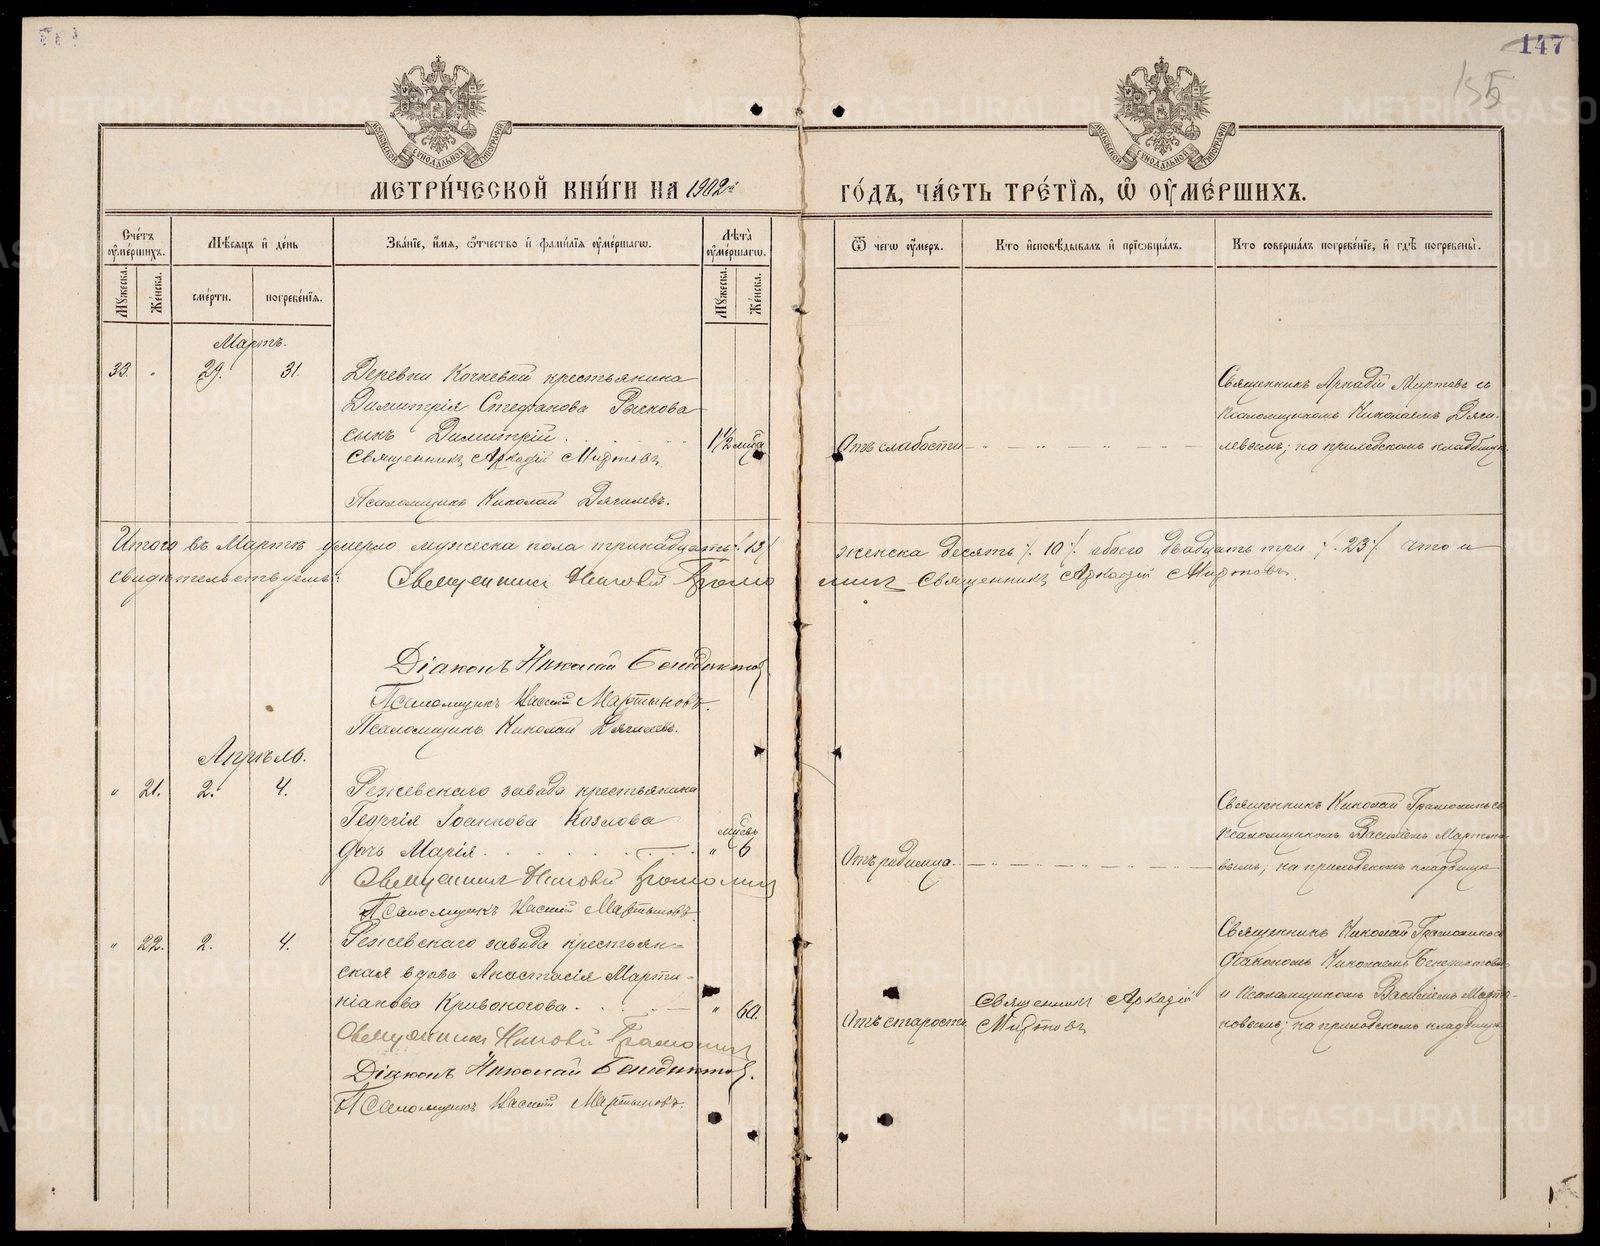 147
155
МОСКОВСКОЙ СѴНОДАЛЬНОЙ ТИПОГРАФІИ
МОСКОВСКОЙ СѴНОДАЛЬНОЙ ТИПОГРАФІИ
МЕТРИ́ЧЕСКОЙ КНИ́ГИ НА 1902й
ГО́ДЪ, ЧА́СТЬ ТРЕ́ТІѦ, Ѡ҆ ОУ҆МЕ́РШИХЪ.
Счетъ оумершихъ.
Мѣсяцъ и день
Званіе, имя, отчество и фамилія оумершагѡ.
Лѣта оумершагѡ.
Ѿ чегѡ оумеръ.
Кто исповѣдывалъ и пріѡбщалъ.
Кто совершалъ погребеніе, и гдѣ погребены.
Мужеска.
Женска.
смерти.
погребенія.
Мужеска.
Женска.
Мартъ.
33. " 29. 31. Деревни Кочневой крестьянина
Димитрія Стефанова Рычкова
сынъ Димитрій . . . . . 1 1/2 мѣсяца
Священникъ Аркадій Миртовъ.
Псаломщикъ Николай Дягилевъ.
Отъ слабости
Священникъ Аркадій Миртовъ съ
псаломщикомъ Николаемъ Дяги-
левымъ; на приходскомъ кладбищѣ
Итого въ Мартѣ умерло мужеска пола тринадцать ·/· 13 /· женска десять ·/· 10 ·/· обоего двадцать три ·/· 23 ·/· что и
свидѣтельствуемъ: Священникъ Николай Грамолинъ Священникъ Аркадій Миртовъ.
Діаконъ Николай Бенедиктовъ.
Псаломщикъ Василій Мартыновъ.
Псаломщикъ Николай Дягилевъ.
Апрѣль.
" 21. 2. 4. Режевскаго завода крестьянина
Георгія Іоаннова Козлова
дочь Марія . . . . . " 6 мѣсѧцъ
Священникъ Николай Грамолинъ
Псаломщикъ Василій Мартыновъ
Отъ родимца.
Священникъ Николай Грамолинъ съ
псаломщикомъ Василіемъ Марты-
новымъ; на приходскомъ кладбищѣ
" 22. 2. 4. Режевскаго завода крестьян-
ская вдова Анастасія Марти-
ніанова Кривоногова . . . . " 60.
Священникъ Николай Грамолинъ
Діаконъ Николай Бенедиктовъ.
Псаломщикъ Василій Мартыновъ.
Отъ старости
Священникъ Аркадій
Миртовъ
Священникъ Николай Грамолинъ съ
діакономъ Николаемъ Бенедиктовымъ
и псаломщикомъ Василіемъ Марты-
новымъ; на приходскомъ кладбищѣ
METRIKI.GASO-URAL.RU